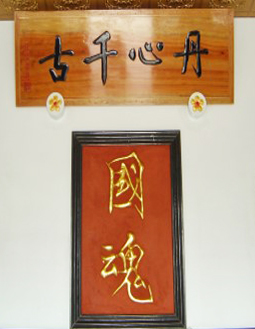 丹心千古
國魂